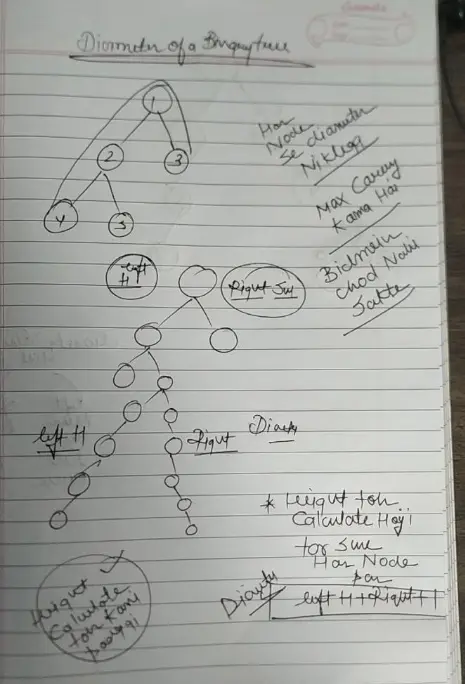 Diameter of a Binary tree
1
2
3
4
5
Har
Node
se diameter
Niklega
Max Carry
Karna Hai
Bich mein
Chod Nahi
Sakte
left
H
Right
left H
Right
* Height toh
Calculate Hogi
for sure
Har Node
par
left H + Right + 1
Height
Calculate
toh Karni
padegi